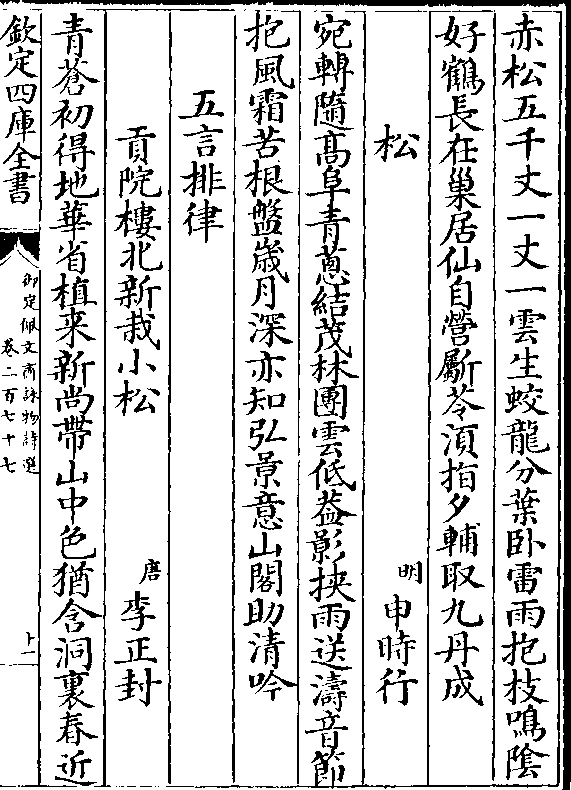 赤松五千丈一丈一雲生蛟龍分葉卧雷雨抱枝鳴陰
好鶴長在巢居仙自營斸苓須指夕輔取九丹成
松 明 申時行
宛轉隨髙阜青蔥結茂林團雲低葢影挾雨送濤音節
抱風霜苦根盤歲月深亦知弘景意山閣助清吟
五言排律
貢院樓北新栽小松 唐 李正封
青蒼初得地華省植来新尚帶山中色猶含洞裏春近
欽定四庫全書
御定佩文齋詠物詩選
卷二百七十七
十一